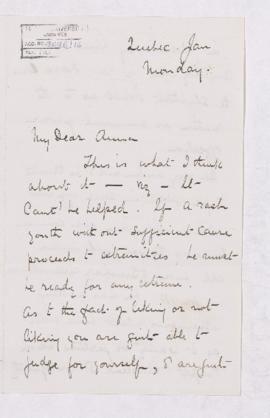 Quebec Jan
Monday.
My Dear Anna
This is what I think
about it — viz — It
Can't be helped. If a rash
youth without sufficient Cause
proceeds to extremities he must
be ready for any extreme.
As to the fact of liking or not
liking you are quite able to
judge for yourself, & are just